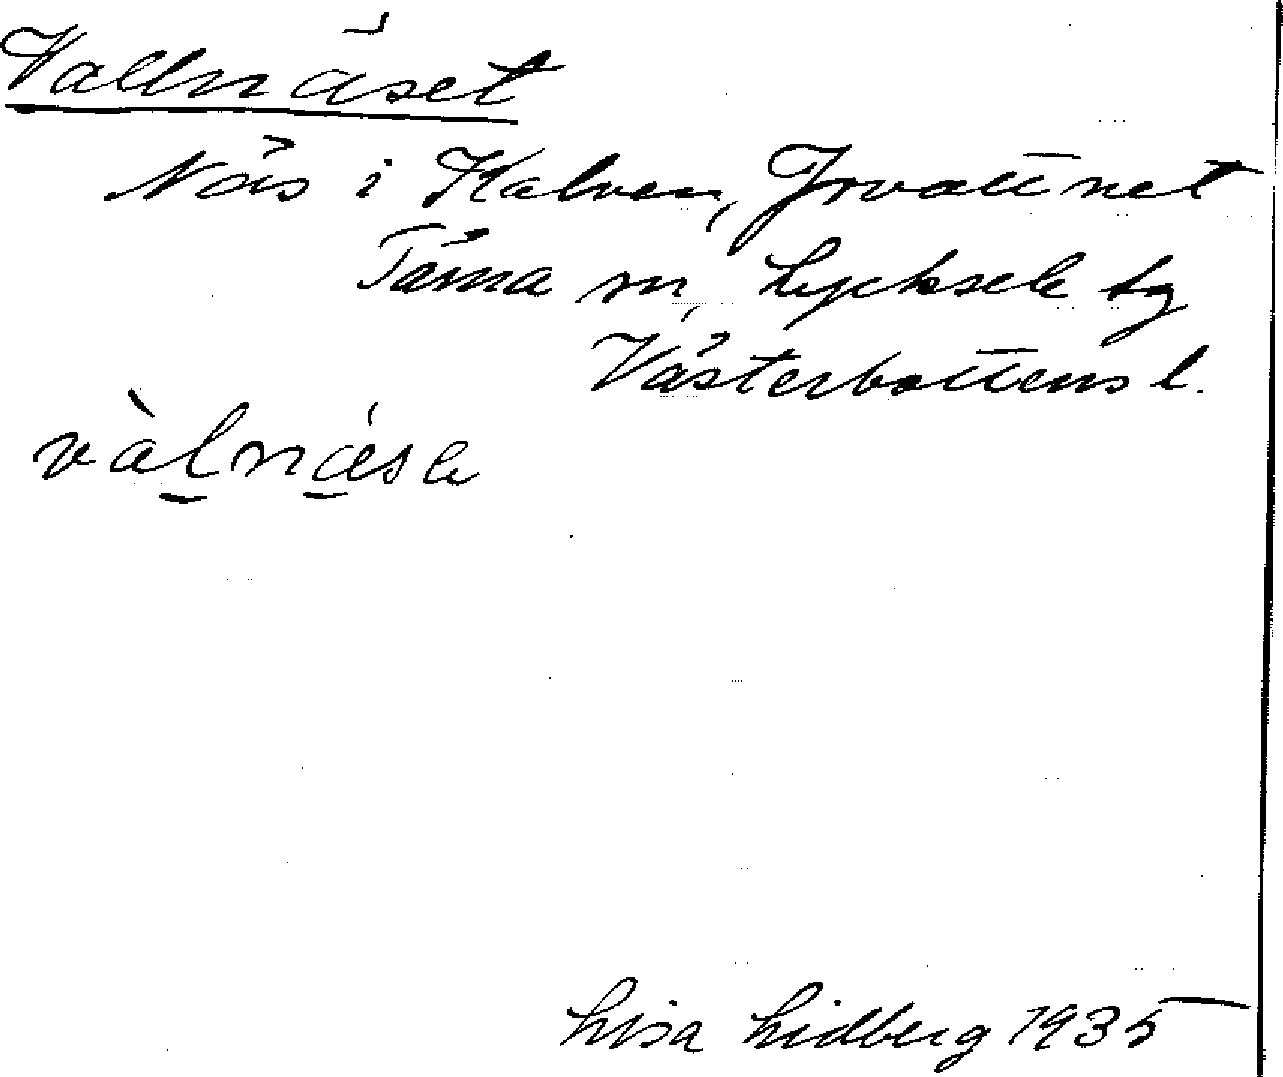 Vallnäset
Näs i Kalven, Jovattnet
Tärna sn, Lycksele tg
Västerbottens l.
vàlnäsə
Lisa Lidberg 1935